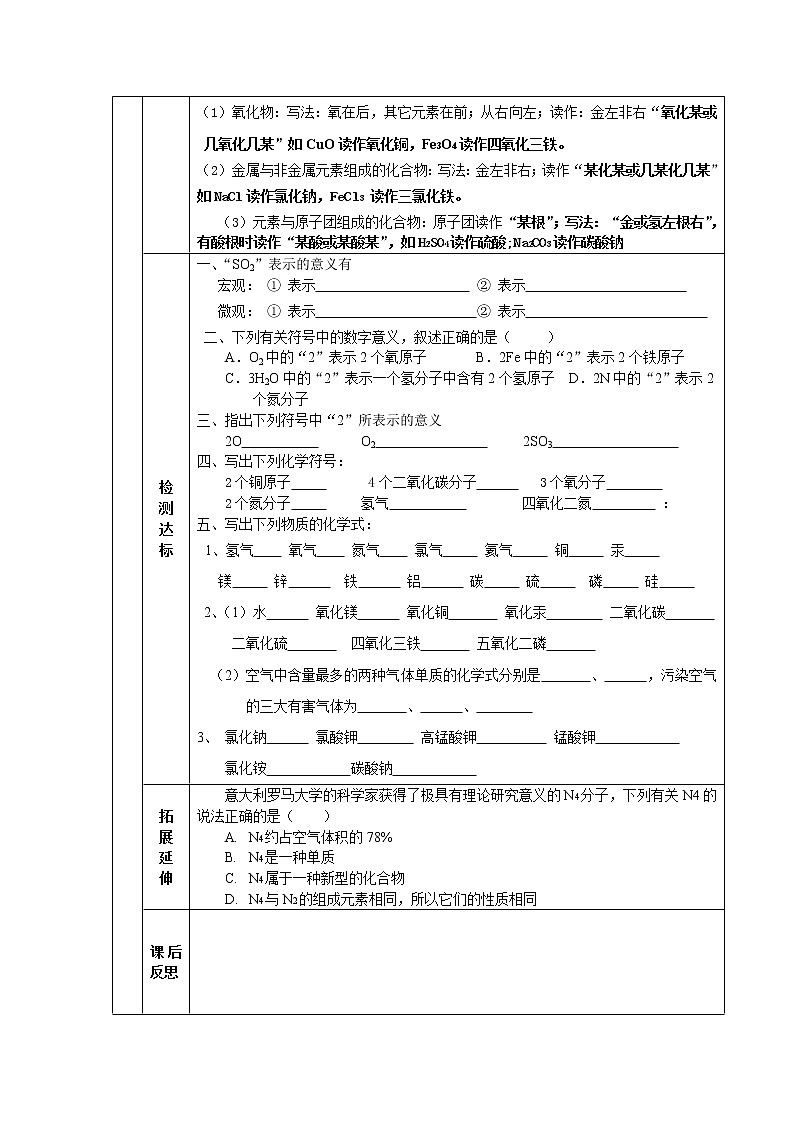 （1）氧化物：写法：氧在后，其它元素在前；从右向左；读作：金左非右“氧化某或
几氧化几某”如 CuO 读作氧化铜，Fe₃O₄ 读作四氧化三铁。
（2）金属与非金属元素组成的化合物：写法：金左非右；读作“某化某或几某化几某”
如 NaCl 读作氯化钠，FeCl₃ 读作三氯化铁。
（3）元素与原子团组成的化合物：原子团读作“某根”；写法：“金或氢左根右”，
有酸根时读作“某酸或某酸某”，如 H₂SO₄ 读作硫酸；Na₂CO₃ 读作碳酸钠
检测达标
一、“SO₂”表示的意义有
宏观： ① 表示______________________ ② 表示_______________________
微观： ① 表示_______________________② 表示__________________________
二、下列有关符号中的数字意义，叙述正确的是（ ）
A．O₂ 中的“2”表示 2 个氧原子 B．2Fe 中的“2”表示 2 个铁原子
C．3H₂O 中的“2”表示一个氢分子中含有 2 个氢原子 D．2N 中的“2”表示 2
个氮分子
三、指出下列符号中“2”所表示的意义
2O___________ O₂________________ 2SO₃__________________
四、写出下列化学符号：
2 个铜原子_____ 4 个二氧化碳分子______ 3 个氧分子________
2 个氮分子_____ 氢气___________ 四氧化二氮_________ ：
五、写出下列物质的化学式：
1、氢气____ 氧气____ 氮气____ 氯气_____ 氦气_____ 铜_____ 汞_____
镁_____ 锌______ 铁______ 铝______ 碳_____ 硫_____ 磷_____ 硅_____
2、（1）水______ 氧化镁______ 氧化铜_______ 氧化汞________ 二氧化碳_______
二氧化硫_______ 四氧化三铁_______ 五氧化二磷_______
（2）空气中含量最多的两种气体单质的化学式分别是_______、______，污染空气
的三大有害气体为_______、______、________
3、 氯化钠______ 氯酸钾________ 高锰酸钾__________ 锰酸钾____________
氯化铵____________碳酸钠____________
拓展延伸
意大利罗马大学的科学家获得了极具有理论研究意义的 N₄ 分子，下列有关 N4 的
说法正确的是（ ）
A. N₄ 约占空气体积的 78%
B. N₄ 是一种单质
C. N₄ 属于一种新型的化合物
D. N₄ 与 N₂ 的组成元素相同，所以它们的性质相同
课后
反思